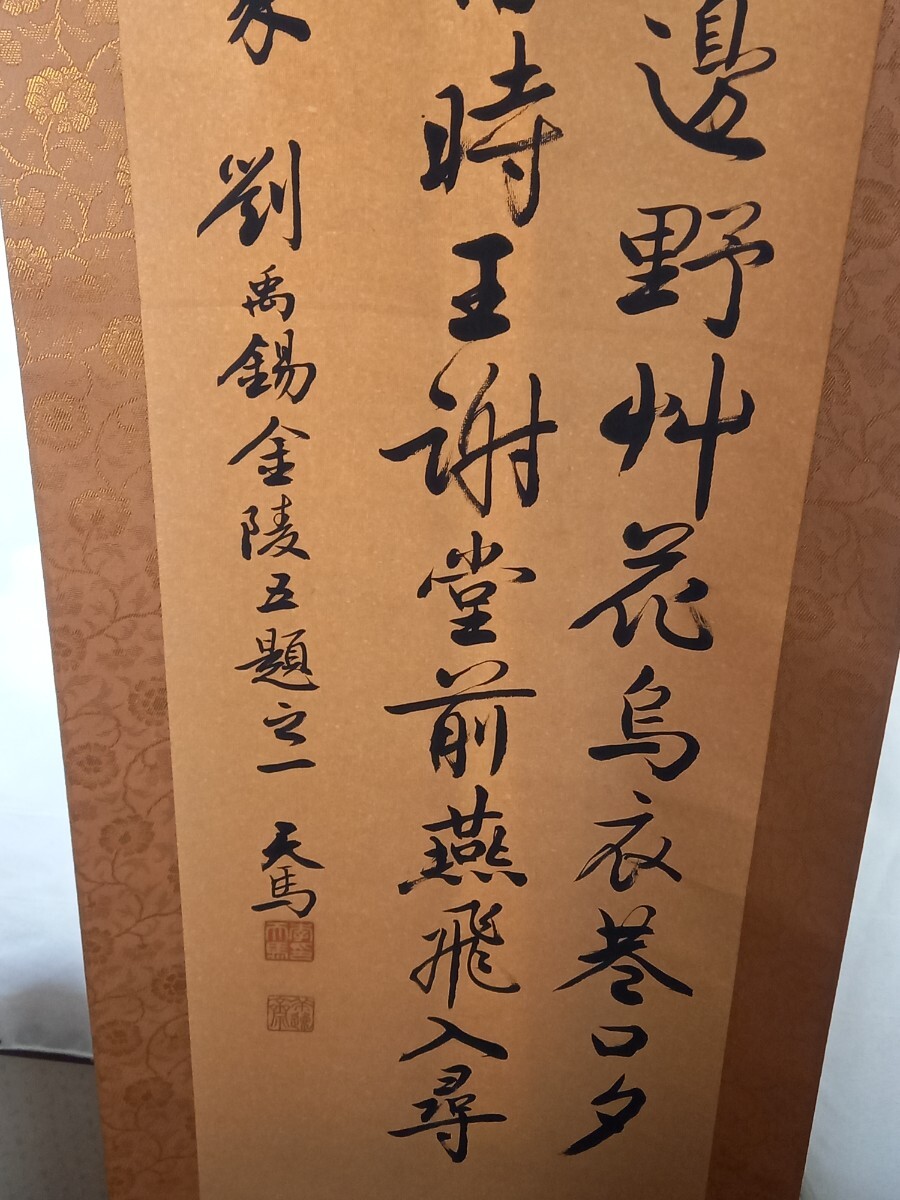 邊野艸花烏衣巷口夕
時王謝堂前燕飛入尋
劉禹錫金陵五題之一 天馬